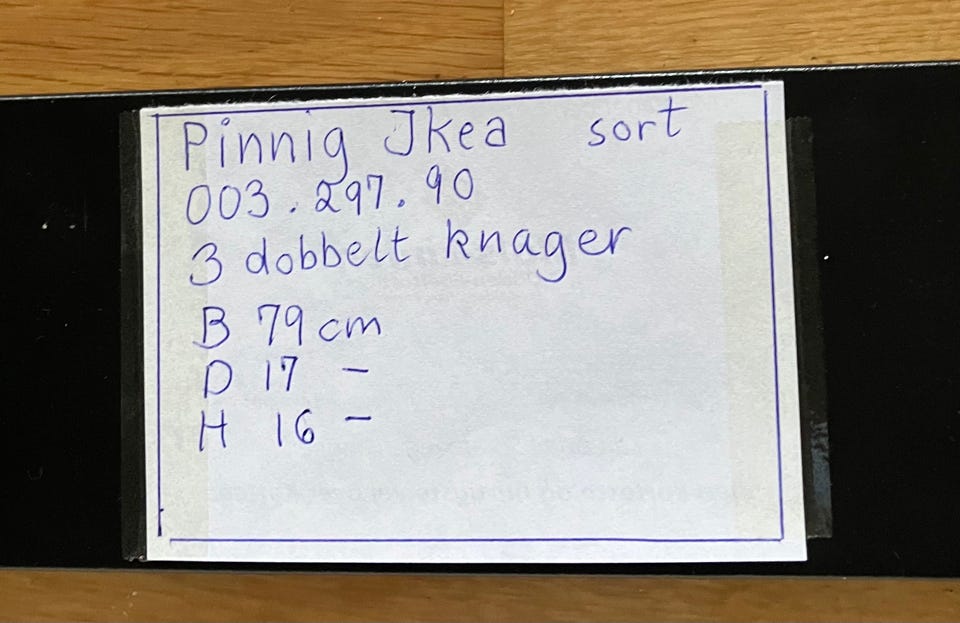 Pinnig Ikea sort
003.297.90
3 dobbelt knager
B 79 cm
D 17 -
H 16 -